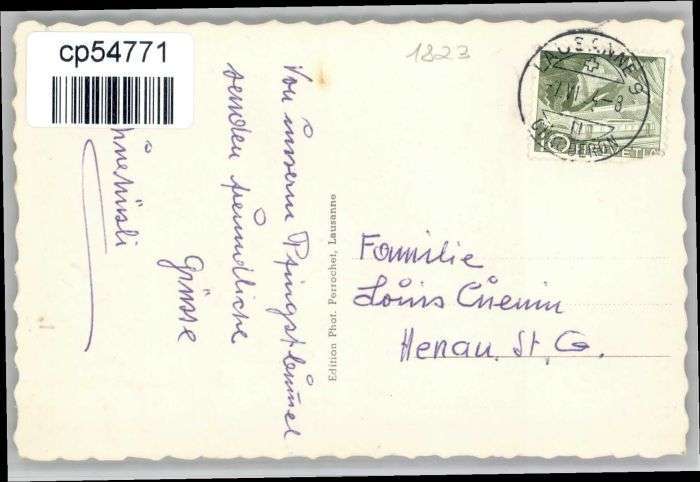 cp54771
1823
LAUSANNE 9
10
HELVETIA
Von unserm Pfingstbummel
senden freundliche
Grüsse
Edition Phot. Perrochet, Lausanne
Familie
Louis Cuenin
Henau. St. G.